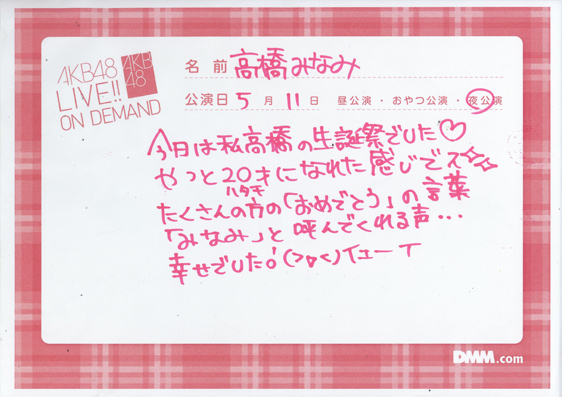 AKB48
LIVE!!
ON DEMAND
AKB
48
名 前 高橋みなみ
公演日 5 月 11 日 昼公演・おやつ公演・夜公演
今日は私高橋の生誕祭でした♡
やっと20才になれた感じでス☆☆
ハタチ
たくさんの方の「おめでとう」の言葉
「みなみ」と呼んでくれる声...
幸せでした!(>▽<)イェーイ
DMM.com